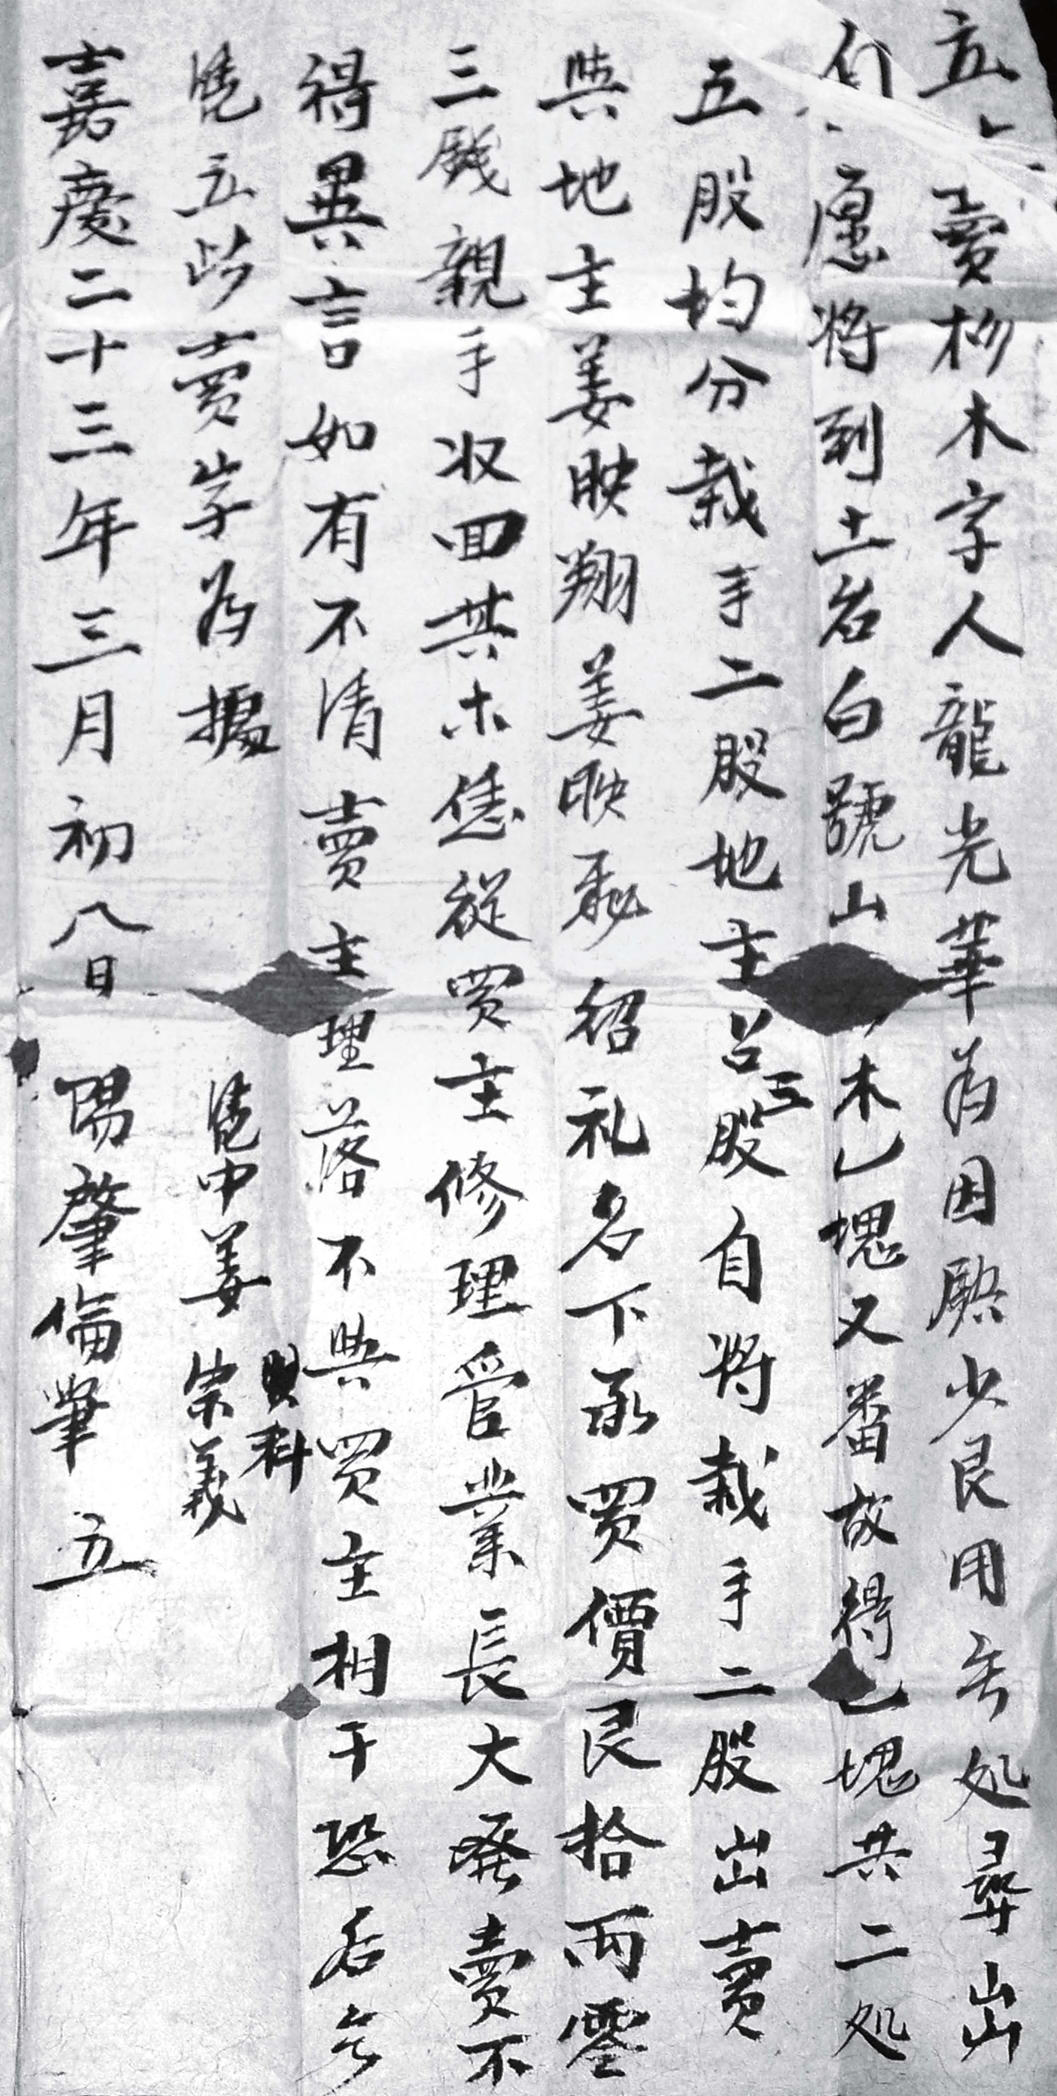 立賣杉木字人龍光華為因缺少艮用無処尋出
自愿將到土名白號山木乙塊又番故得乙塊共二処
五股均分栽手二股地主占三股自將栽手二股出賣
與地主姜映翔姜映紹礼名下承買價艮拾兩零
三錢親手收回其木恁從買主修理管業長大發賣不
得異言如有不清賣主理落不與買主相干恐后無
憑立此賣字為據
憑中姜宗義
科
嘉慶二十三年三月初八日 陽肇倫筆 立